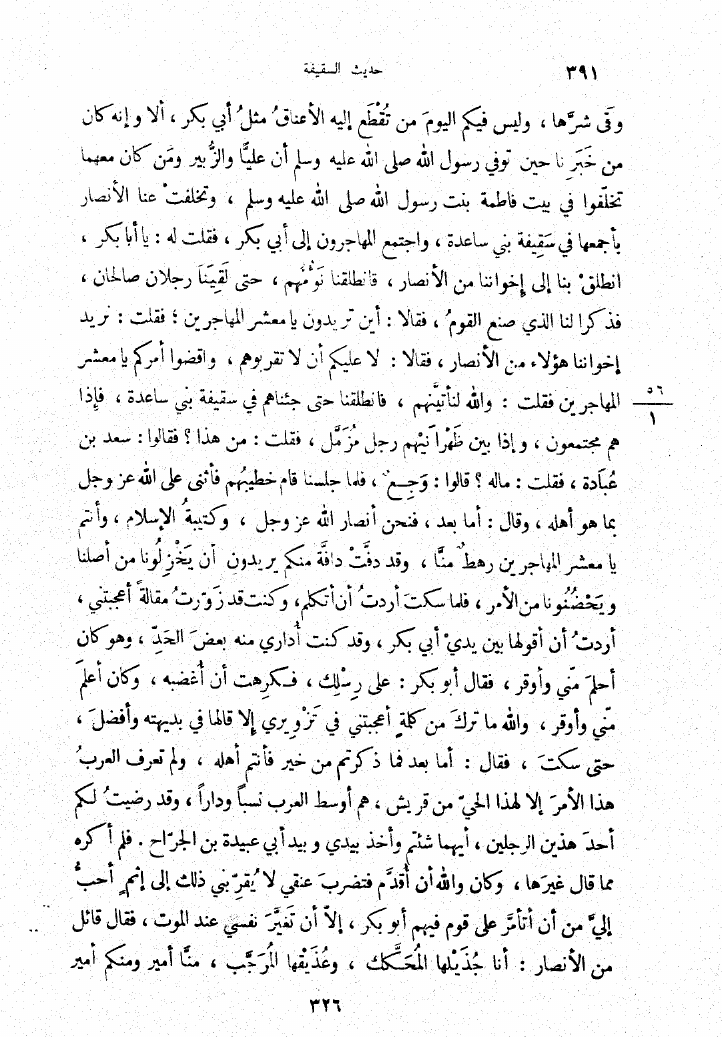 ٣٩١ حديث السقيفة
وقى شرَّها ، وليس فيكم اليومَ من تُقْطَع إليه الأعناقُ مثلُ أبي بكر ، ألا وإنه كان
من خَبَرِنا حين توفي رسول الله صلى الله عليه وسلم أن عليًّا والزُّبير ومَن كان معهما
تخلّفوا في بيت فاطمة بنت رسول الله صلى الله عليه وسلم ، وتخلفتْ عنا الأنصار
بأجمعها في سَقِيفة بني ساعدة ، واجتمع المهاجرون إلى أبي بكر ، فقلت له : يا أبا بكر ،
انطلقْ بنا إلى إخواننا من الأنصار ، فانطلقنا نَؤُمُّهم ، حتى لَقِيَنَا رجلان صالحان ،
فذكرا لنا الذي صنع القومُ ، فقالا : أين تريدون يا معشر المهاجرين ؟ فقلت : نريد
إخواننا هؤلاء من الأنصار ، فقالا : لا عليكم أن لا تقربوهم ، واقضوا أمركم يا معشر
المهاجرين فقلت : والله لنأتيَنَّهم ، فانطلقنا حتى جئناهم في سقيفة بني ساعدة ، فإذا
٥٦
١
هم مجتمعون ، وإذا بين ظَهْرَانَيْهم رجل مُزَمَّل ، فقلت : من هذا ؟ فقالوا : سعد بن
عُبَادة ، فقلت : ماله ؟ قالوا : وَجِعٌ ، فلما جلسنا قام خطيبُهم فأثنى على الله عز وجل
بما هو أهله ، وقال : أما بعد ، فنحن أنصار الله عز وجل ، وكتيبةُ الإسلام ، وأنتم
يا معشر المهاجرين رهطٌ منَّا ، وقد دفَّتْ دافَّة منكم يريدون أن يَخْزِلُونا من أصلنا
ويَحْضُنُونا من الأمر ، فلما سكت أردتُ أن أتكلم، وكنت قد زَوّرتُ مقالةً أعجبتني ،
أردتُ أن أقولها بين يديْ أبي بكر ، وقد كنت أُداري منه بعضَ الحَدِّ ، وهو كان
أحلمَ منّي وأوقر ، فقال أبو بكر : على رِسْلِك ، فكرهت أن أُغضبه ، وكان أعلمَ
منّي وأوقر ، والله ما تركَ من كلمةٍ أعجبتني في تَزْويري إلا قالها في بديهته وأفضلَ ،
حتى سكتَ ، فقال : أما بعد فما ذكرتم من خير فأنتم أهله ، ولم تعرف العربُ
هذا الأمرَ إلا لهذا الحيّ من قريش ، هم أوسط العرب نسبًا وداراً ، وقد رضيتُ لكم
أحدَ هذين الرجلين ، أيهما شئتم وأخذ بيدي وبيد أبي عبيدة بن الجرّاح . فلم أكره
مما قال غيرَها ، وكان والله أن أُقدَّم فتضربَ عنقي لا يُقرّبني ذلك إلى إثمٍ أحبُّ
إليَّ من أن أتأمَّر على قوم فيهم أبو بكر ، إلاّ أن تَغَيَّرَ نفسي عند الموت ، فقال قائل
من الأنصار : أنا جُذَيلها المُحَكَّك ، وعُذَيقها المُرَجَّب ، منَّا أمير ومنكم أمير
٣٢٦